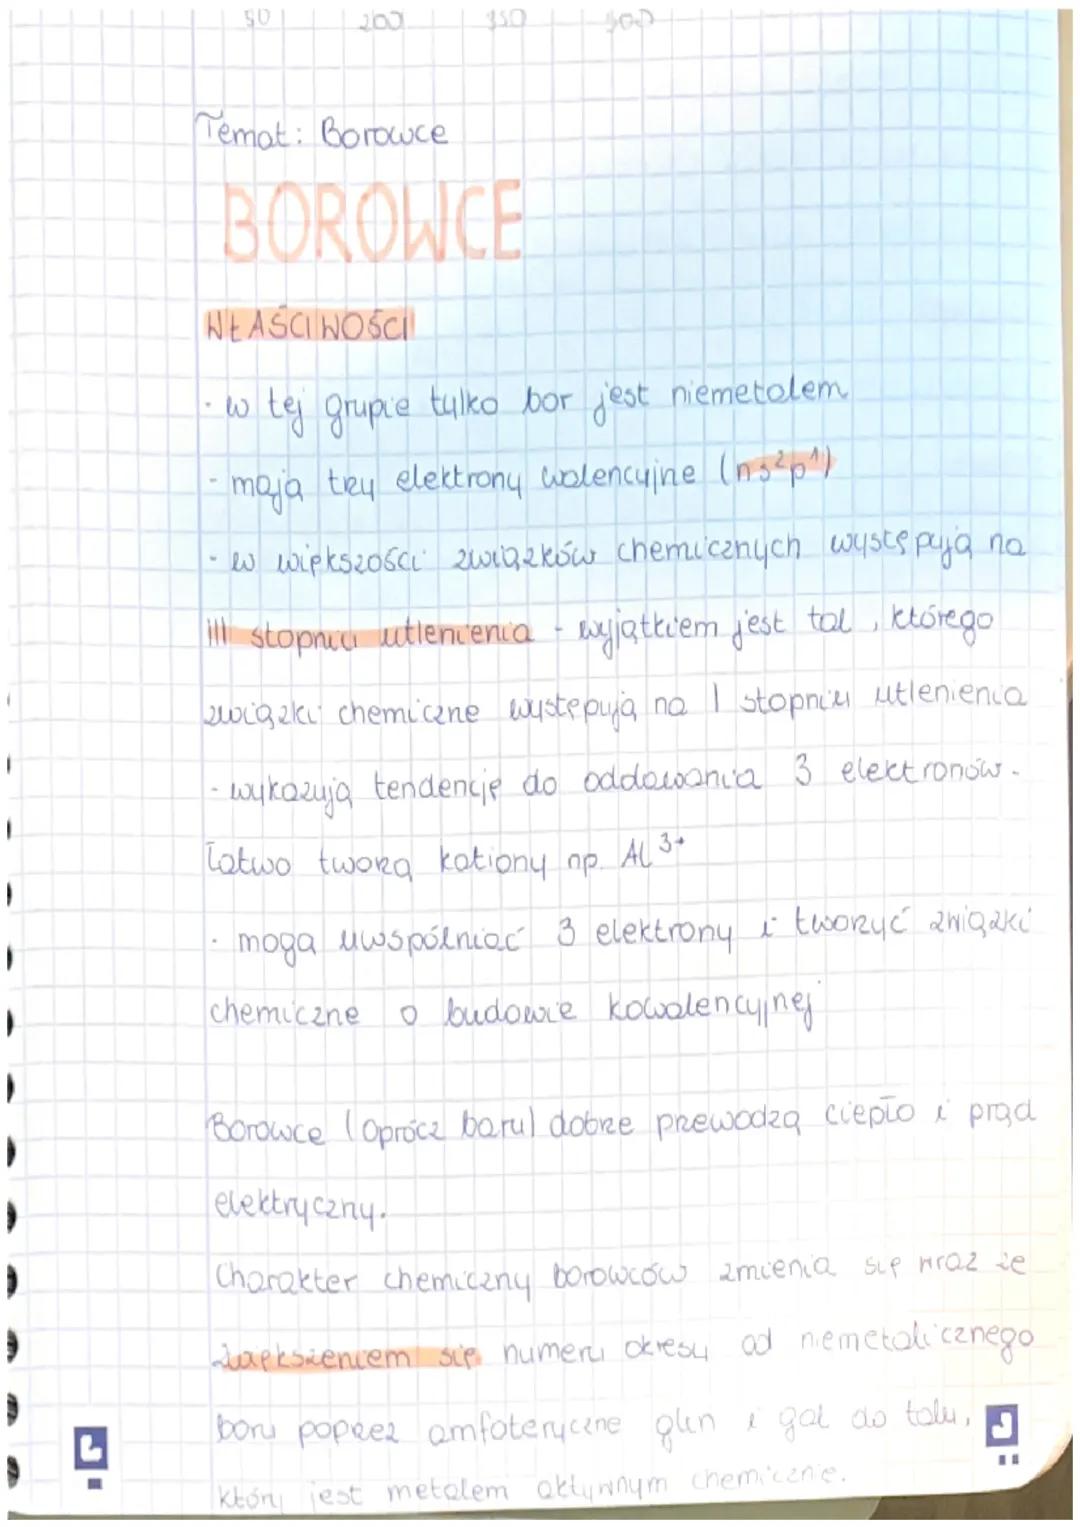 50 200 350 500
Temat: Borowce
BOROWCE
WŁAŚCIWOŚCI
- w tej grupie tylko bor jest niemetalem
- mają trzy elektrony walencyjne (ns²p¹)
- w większości związków chemicznych występują na
III stopniu utlenienia - wyjątkiem jest tal, którego
związki chemiczne występują na I stopniu utlenienia
- wykazują tendencję do oddawania 3 elektronów.
Łatwo tworzą kationy np. Al³⁺
- mogą uwspólniać 3 elektrony i tworzyć związki
chemiczne o budowie kowalencyjnej
Borowce (oprócz baru) dobrze przewodzą ciepło i prąd
elektryczny.
Charakter chemiczny borowców zmienia się wraz ze
zwiększeniem się numeru okresu od niemetalicznego
boru poprzez amfoteryczne glin i gal do talu,
który jest metalem aktywnym chemicznie.